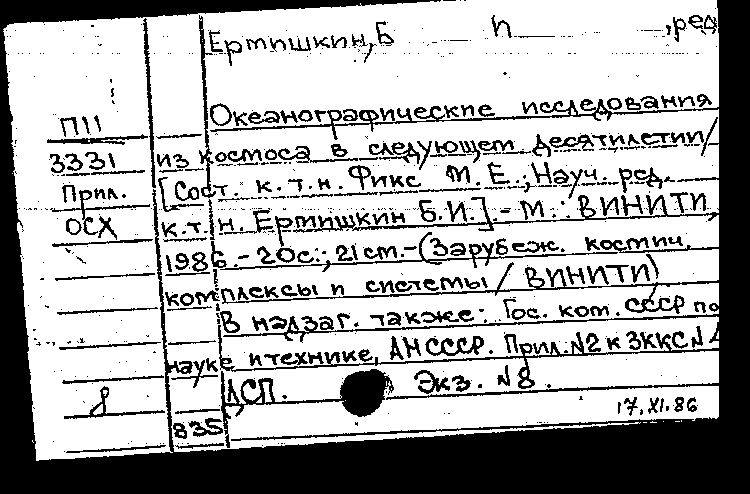 Ермишкин, Б И , ред
П11 Океанографические исследования
3331 из космоса в следующем десятилетии/
Прил. [Сост. к.т.н. Фикс М.Е.; Науч. ред.
ОСХ к.т.н. Ермишкин Б.И.].- М.: ВИНИТИ,
1986.- 20с.; 21см.- (Зарубеж. космич.
комплексы и системы / ВИНИТИ)
В надзаг. также: Гос. ком. СССР по
науке и технике, АН СССР. Прил. №2 к ЗККС №
8 ДСП. Экз. №8.
17.XI.86
835